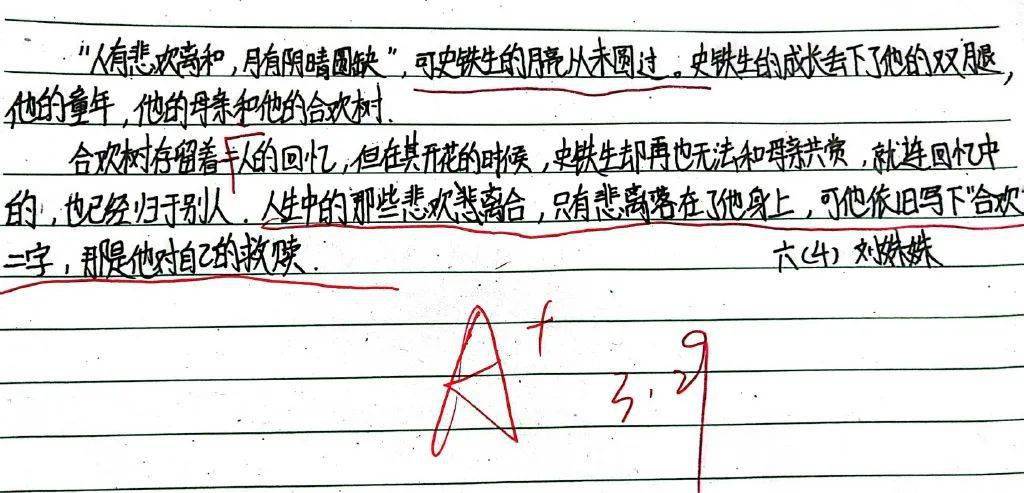 “人有悲欢离和，月有阴晴圆缺”，可史铁生的月亮从未圆过。史铁生的成长丢下了他的双腿，
他的童年，他的母亲和他的合欢树.
合欢树存留着人的回忆，但在其开花的时候，史铁生却再也无法和母亲共赏，就连回忆中
的，也已经归于别人．人生中的那些悲欢悲离合，只有悲离落在了他身上，可他依旧写下“合欢”
二字，那是他对自己的救赎．
六(4) 刘姝姝
A+
3.29